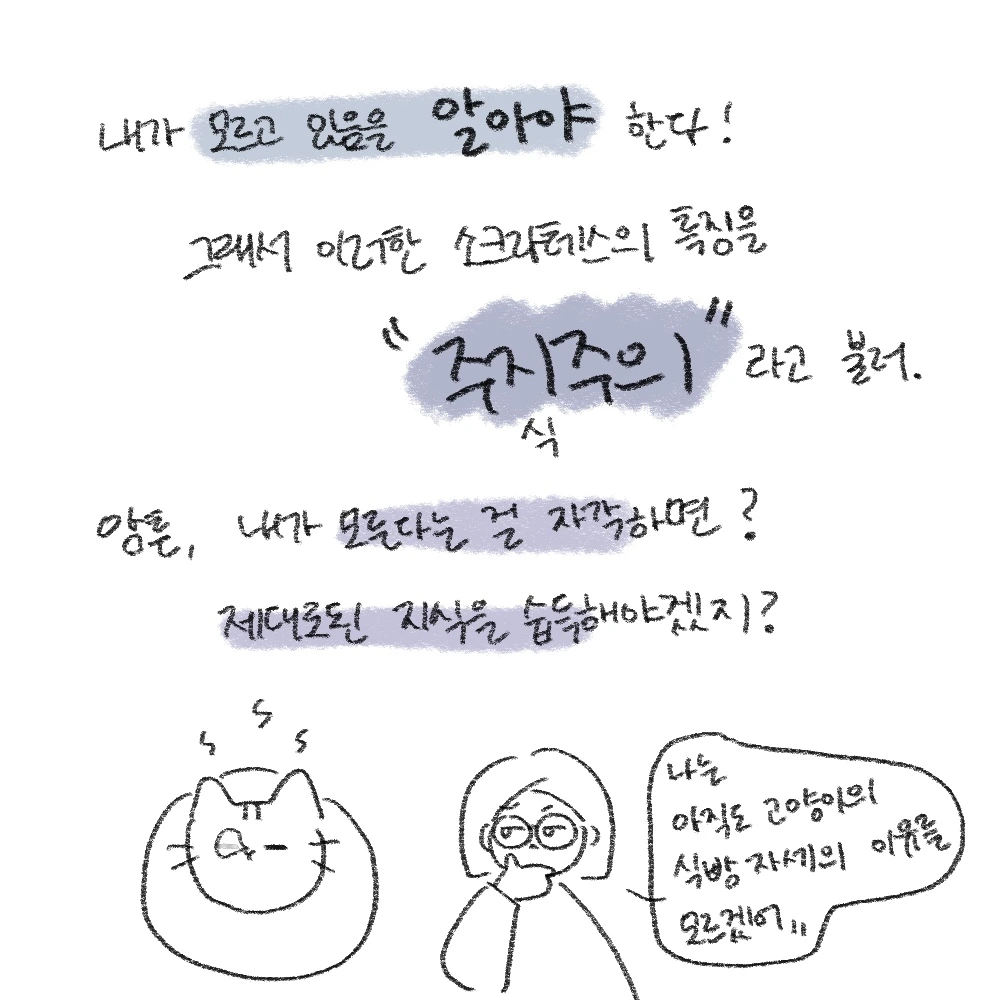 내가 모르고 있음을 알아야 한다!
그래서 이러한 소크라테스의 특징을
"주지주의" 라고 불러.
식
앙톤, 내가 모른다는 걸 자각하면?
제대로된 지식을 습득해야겠지?
나는
아직도 고양이의
식빵 자세의 이유를
모르겠어,,